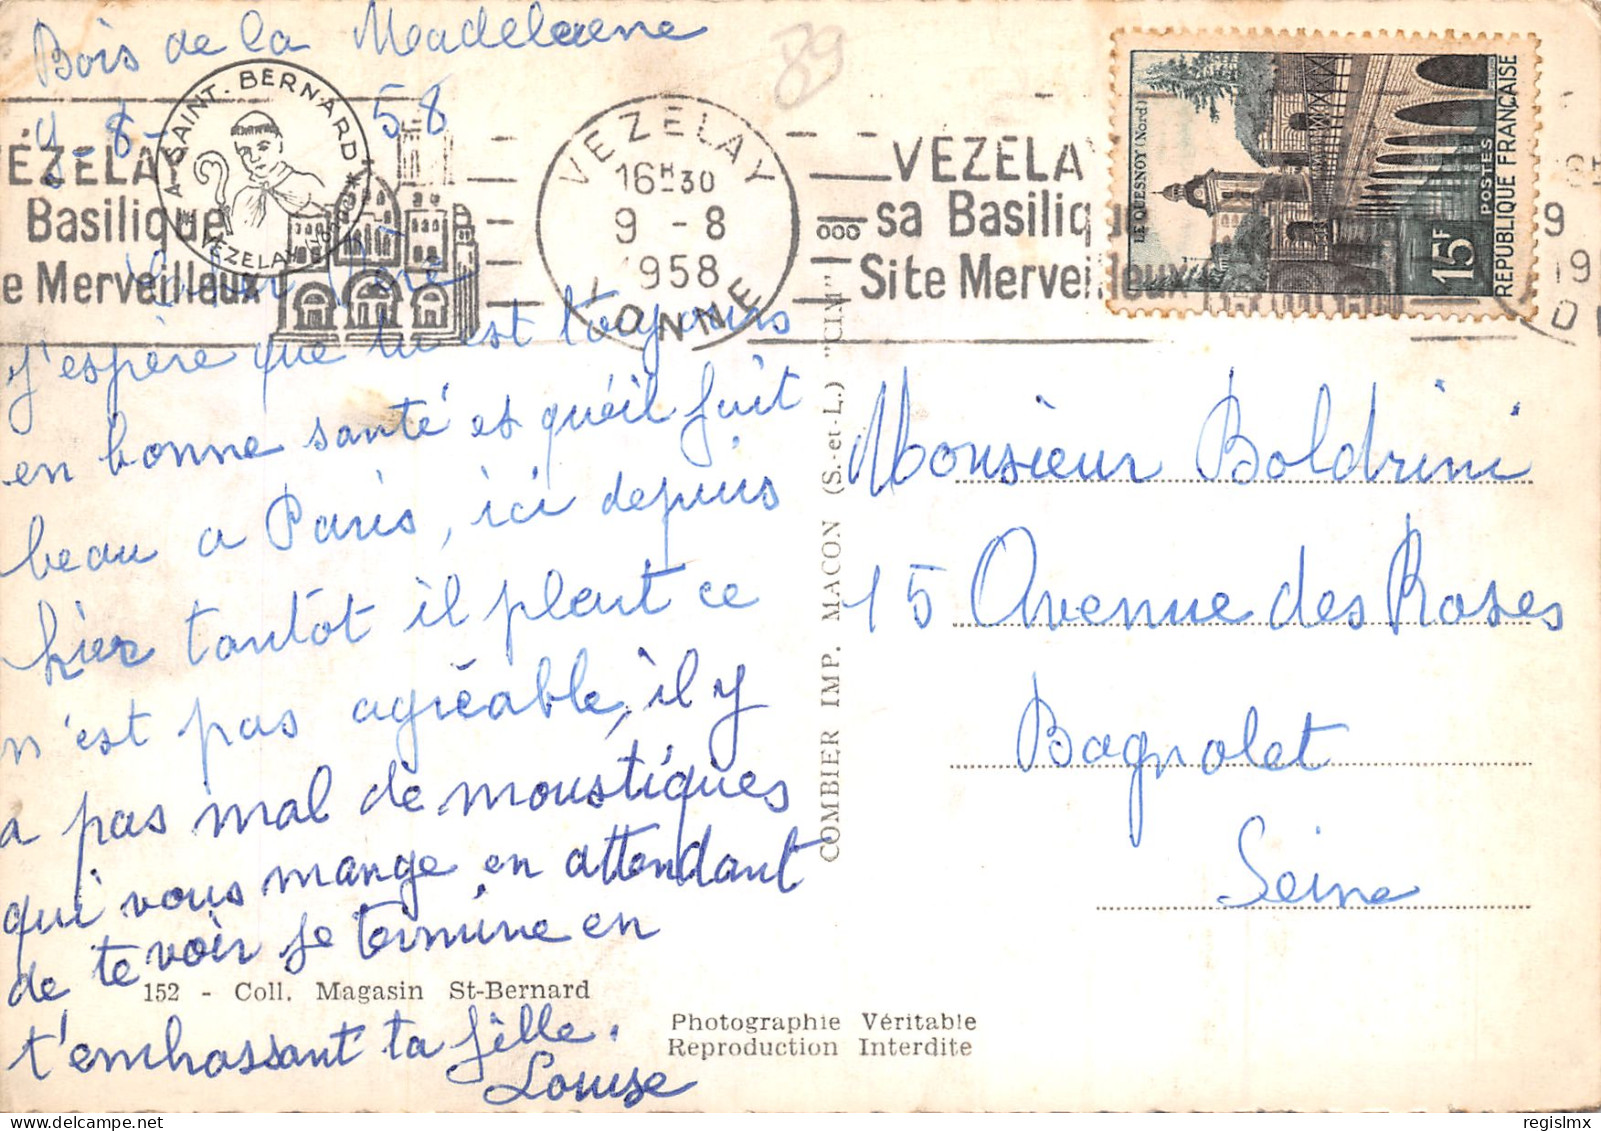 Bois de la Madelaene
9-8-58
89
A SAINT-BERNARD
VEZELAY
VÉZELAY
Basilique
e Merveilleux
VEZELAY
16H30
9 - 8
1958
YONNE
VEZELAY
sa Basilique
Site Merveilleux
LE QUESNOY (Nord)
15F
POSTES
RÉPUBLIQUE FRANÇAISE
Père
J'espère que tu est toujours
en bonne santé et qu'eil fait
beau a Paris, ici depuis
hier tantôt il pleut ce
n'est pas agréable, il y
a pas mal de moustiques
qui vous mange en attendant
de te voir je termine en
t'embassant ta fille.
Louise
152 - Coll. Magasin St-Bernard
Photographie Véritable
Reproduction Interdite
COMBIER IMP. MACON (S.-et-L.) "CIM"
Monsieur Boldrini
15 Avenue des Roses
Bagnolet
Seine
regislmx